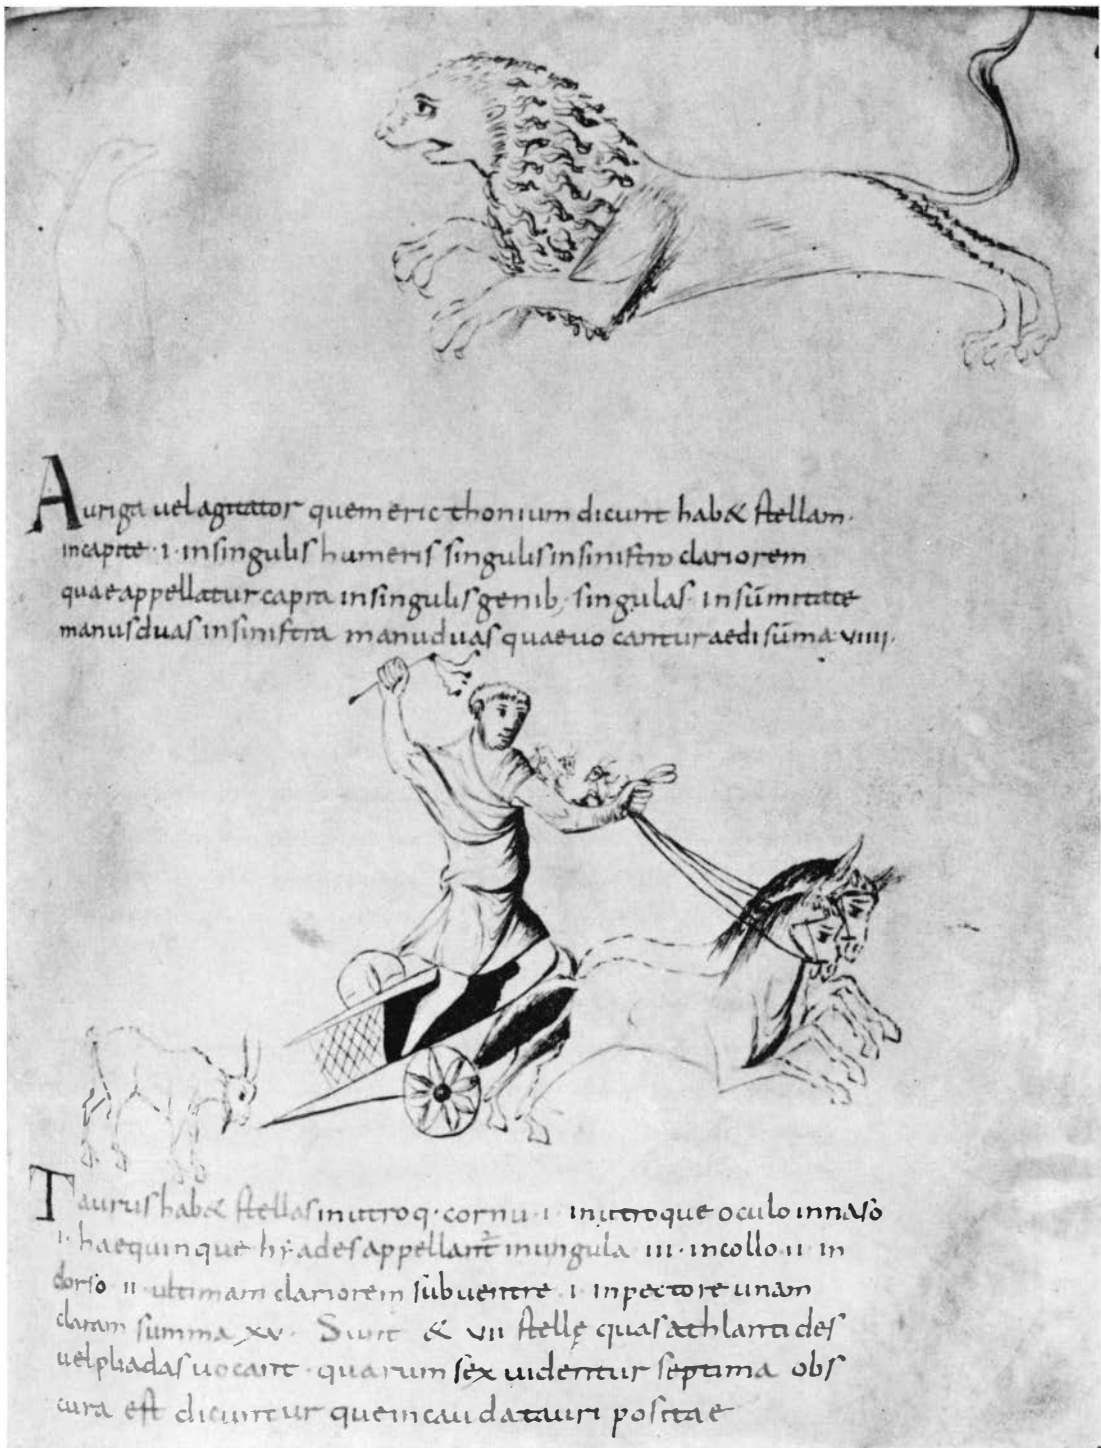 Auriga vel agitator quem ericthonium dicunt hab& stellam·
incapite·i·insingulis humeris singulis insinistro clariorem
quae appellatur capra insingulis genib; singulas· insūmitate
manus duas insinistra manu duas quae vo cantur aedi sūma·viiii·
Taurus hab& stellas inutroq·cornu·i· inutroque oculo innaso
i·haequinque hyades appellant inungula iii·incollo·ii·in
dorso ii·ultimam clariorem sub ventre·i·inpectore unam
claram summa xv· Sunt & vii stellę quas athlantides
vel pliadas vocant·quarum sex videntur septima obs
cura est dicuntur que incauda tauri positae